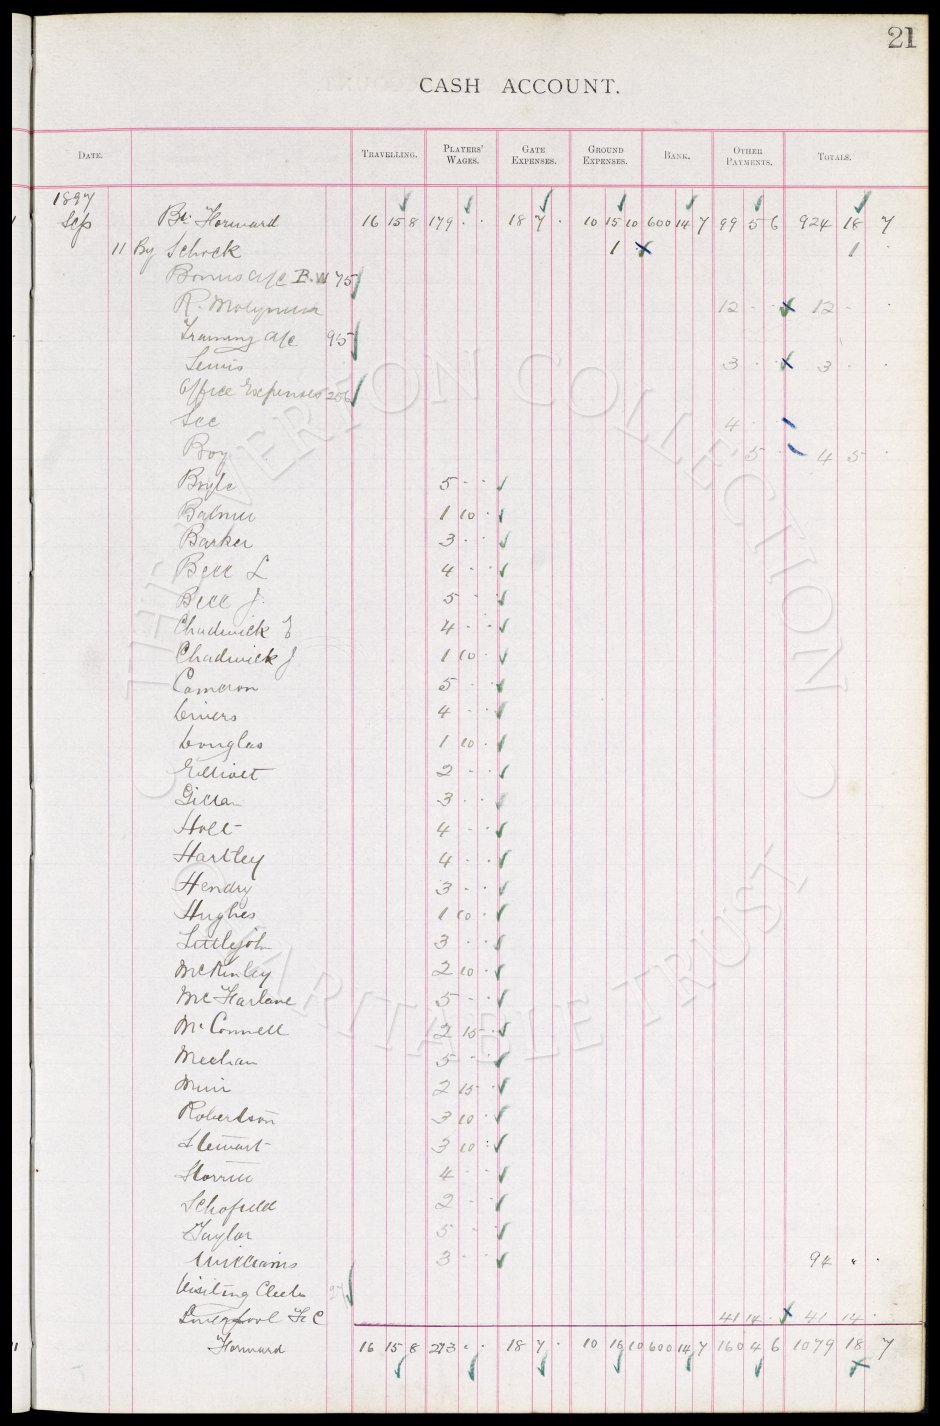 21
CASH ACCOUNT.
DATE. TRAVELLING. PLAYERS' WAGES. GATE EXPENSES. GROUND EXPENSES. BANK. OTHER PAYMENTS. TOTALS.
1897
Sep Bt. Forward 16 15 8 179 . . 18 7 . 10 15 10 600 14 7 99 5 6 924 18 7
11 By Schock 1 . 1 .
Bonus a/c 75
R. Molyneux 12 . . 12 . .
Training a/c 95
Lewis 3 . . 3 . .
Office Expenses 256
Lee 4 .
Boy 5 . 4 5 .
Boyle 5 . .
Balmer 1 10 .
Barker 3 . .
Bell L 4 . .
Bell J. 5 . .
Chadwick E 4 . .
Chadwick J 1 10 .
Cameron 5 . .
Divers 4 . .
Douglas 1 10 .
Elliott 2 . .
Gillan 3 . .
Holt 4 . .
Hartley 4 . .
Hendry 3 . .
Hughes 1 10 .
Littlejohn 3 . .
McKinley 2 10 .
McFarlane 5 . .
McConnell 2 15 .
Meehan 5 . .
Muir 2 15 .
Robertson 3 10 .
Stewart 3 10 .
Storrier 4 . .
Schofield 2 . .
Taylor 5 . .
Williams 3 . . 94 . .
Visiting Clubs
Liverpool F C 41 14 . 41 14 .
Forward 16 15 8 273 . . 18 7 . 10 16 10 600 14 7 160 4 6 1079 18 7
THE EVERTON COLLECTION
CHARITABLE TRUST